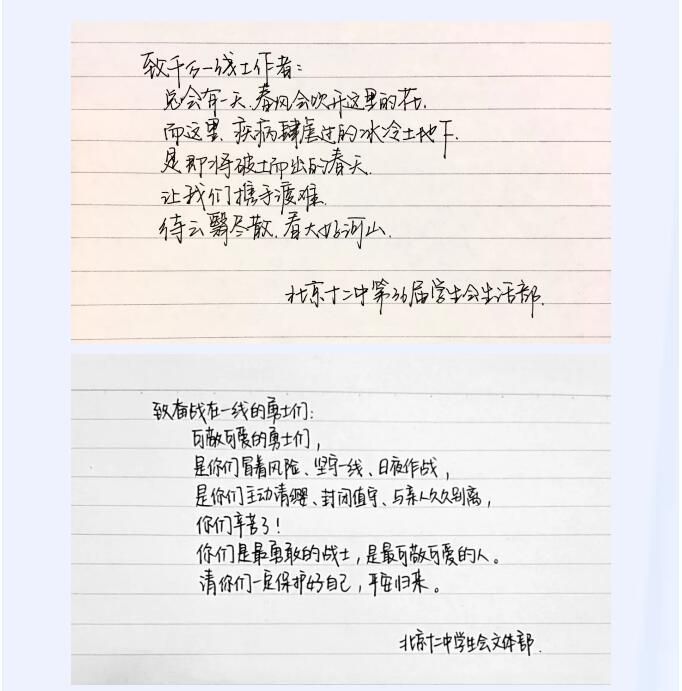 致千万一线工作者：
总会有一天，春风会吹开这里的花，
而这里，疾病肆虐过的冰冷土地下，
是即将破土而出的春天，
让我们携手渡难，
待云翳尽散，看大好河山，
北京十二中第36届学生会生活部，
致奋战在一线的勇士们：
可敬可爱的勇士们，
是你们冒着风险、坚守一线、日夜作战，
是你们主动请缨、封闭值守、与亲人久久别离，
你们辛苦了！
你们是最勇敢的战士，是最可敬可爱的人。
请你们一定保护好自己，平安归来。
北京十二中学生会文体部.